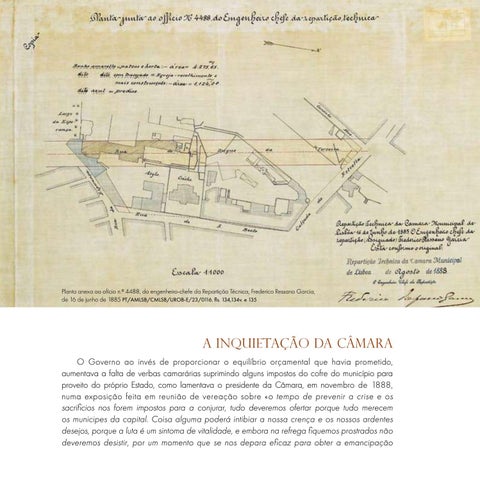 Planta junta ao officio Nº 4488 do Engenheiro chefe da repartição technica
Copia
Banho amarello, pateos e horta - área = 4.575,65
dito dito com tracejado = Egreja - recolhimento e
mais construcções - área = 1.126,00
dito azul = predios.
Largo
da Espe
rança
Rua do Duque da Terceira
Asylo
Calçada da Estrella
Rua de S. Bento
Escala 1:1000
Repartição Technica da Camara Municipal de
Lisboa 16 de Junho de 1885 O Engenheiro chefe da
repartição, (assignado) Frederico Ressano Garcia
Está conforme o original.
Repartição Technica da Camara Municipal
de Lisboa, de Agosto de 1888
O Engenheiro Chefe da Repartição
Frederico Ressano Garcia
Planta anexa ao ofício n.º 4488, do engenheiro-chefe da Repartição Técnica, Frederico Ressano Garcia,
de 16 de junho de 1885 PT/AMLSB/CMLSB/UROB-E/23/0116, fls. 134,134v. e 135
A INQUIETAÇÃO DA CÂMARA
O Governo ao invés de proporcionar o equilíbrio orçamental que havia prometido,
aumentava a falta de verbas camarárias suprimindo alguns impostos do cofre do município para
proveito do próprio Estado, como lamentava o presidente da Câmara, em novembro de 1888,
numa exposição feita em reunião de vereação sobre «o tempo de prevenir a crise e os
sacrifícios nos forem impostos para a conjurar, tudo deveremos ofertar porque tudo merecem
os munícipes da capital. Coisa alguma poderá intibiar a nossa crença e os nossos ardentes
desejos, porque a luta é um sintoma de vitalidade, e embora na refrega fiquemos prostrados não
deveremos desistir, por um momento que se nos depara eficaz para obter a emancipação